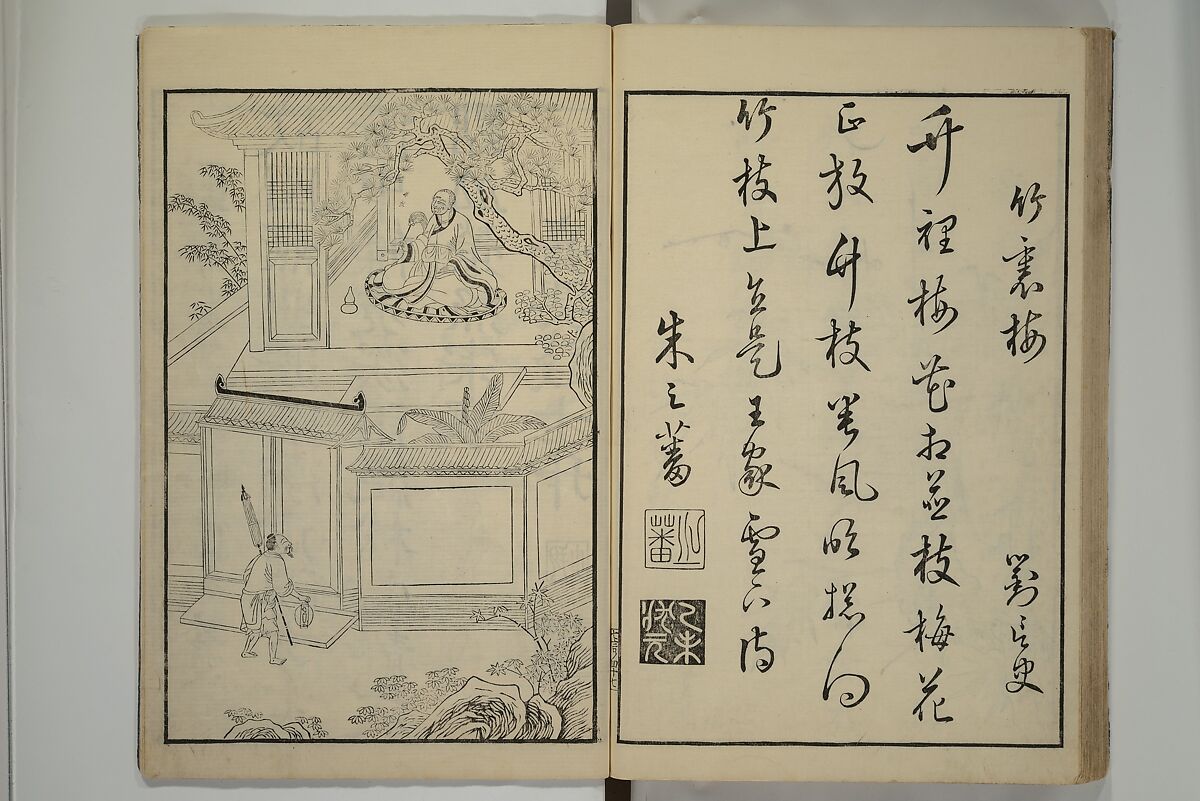 竹裏梅 劉言史
竹裡梅花相並枝梅花
正放竹枝垂風吹總向
竹枝上直是王家雪下時
朱之蕃
之蕃
乙未狀元